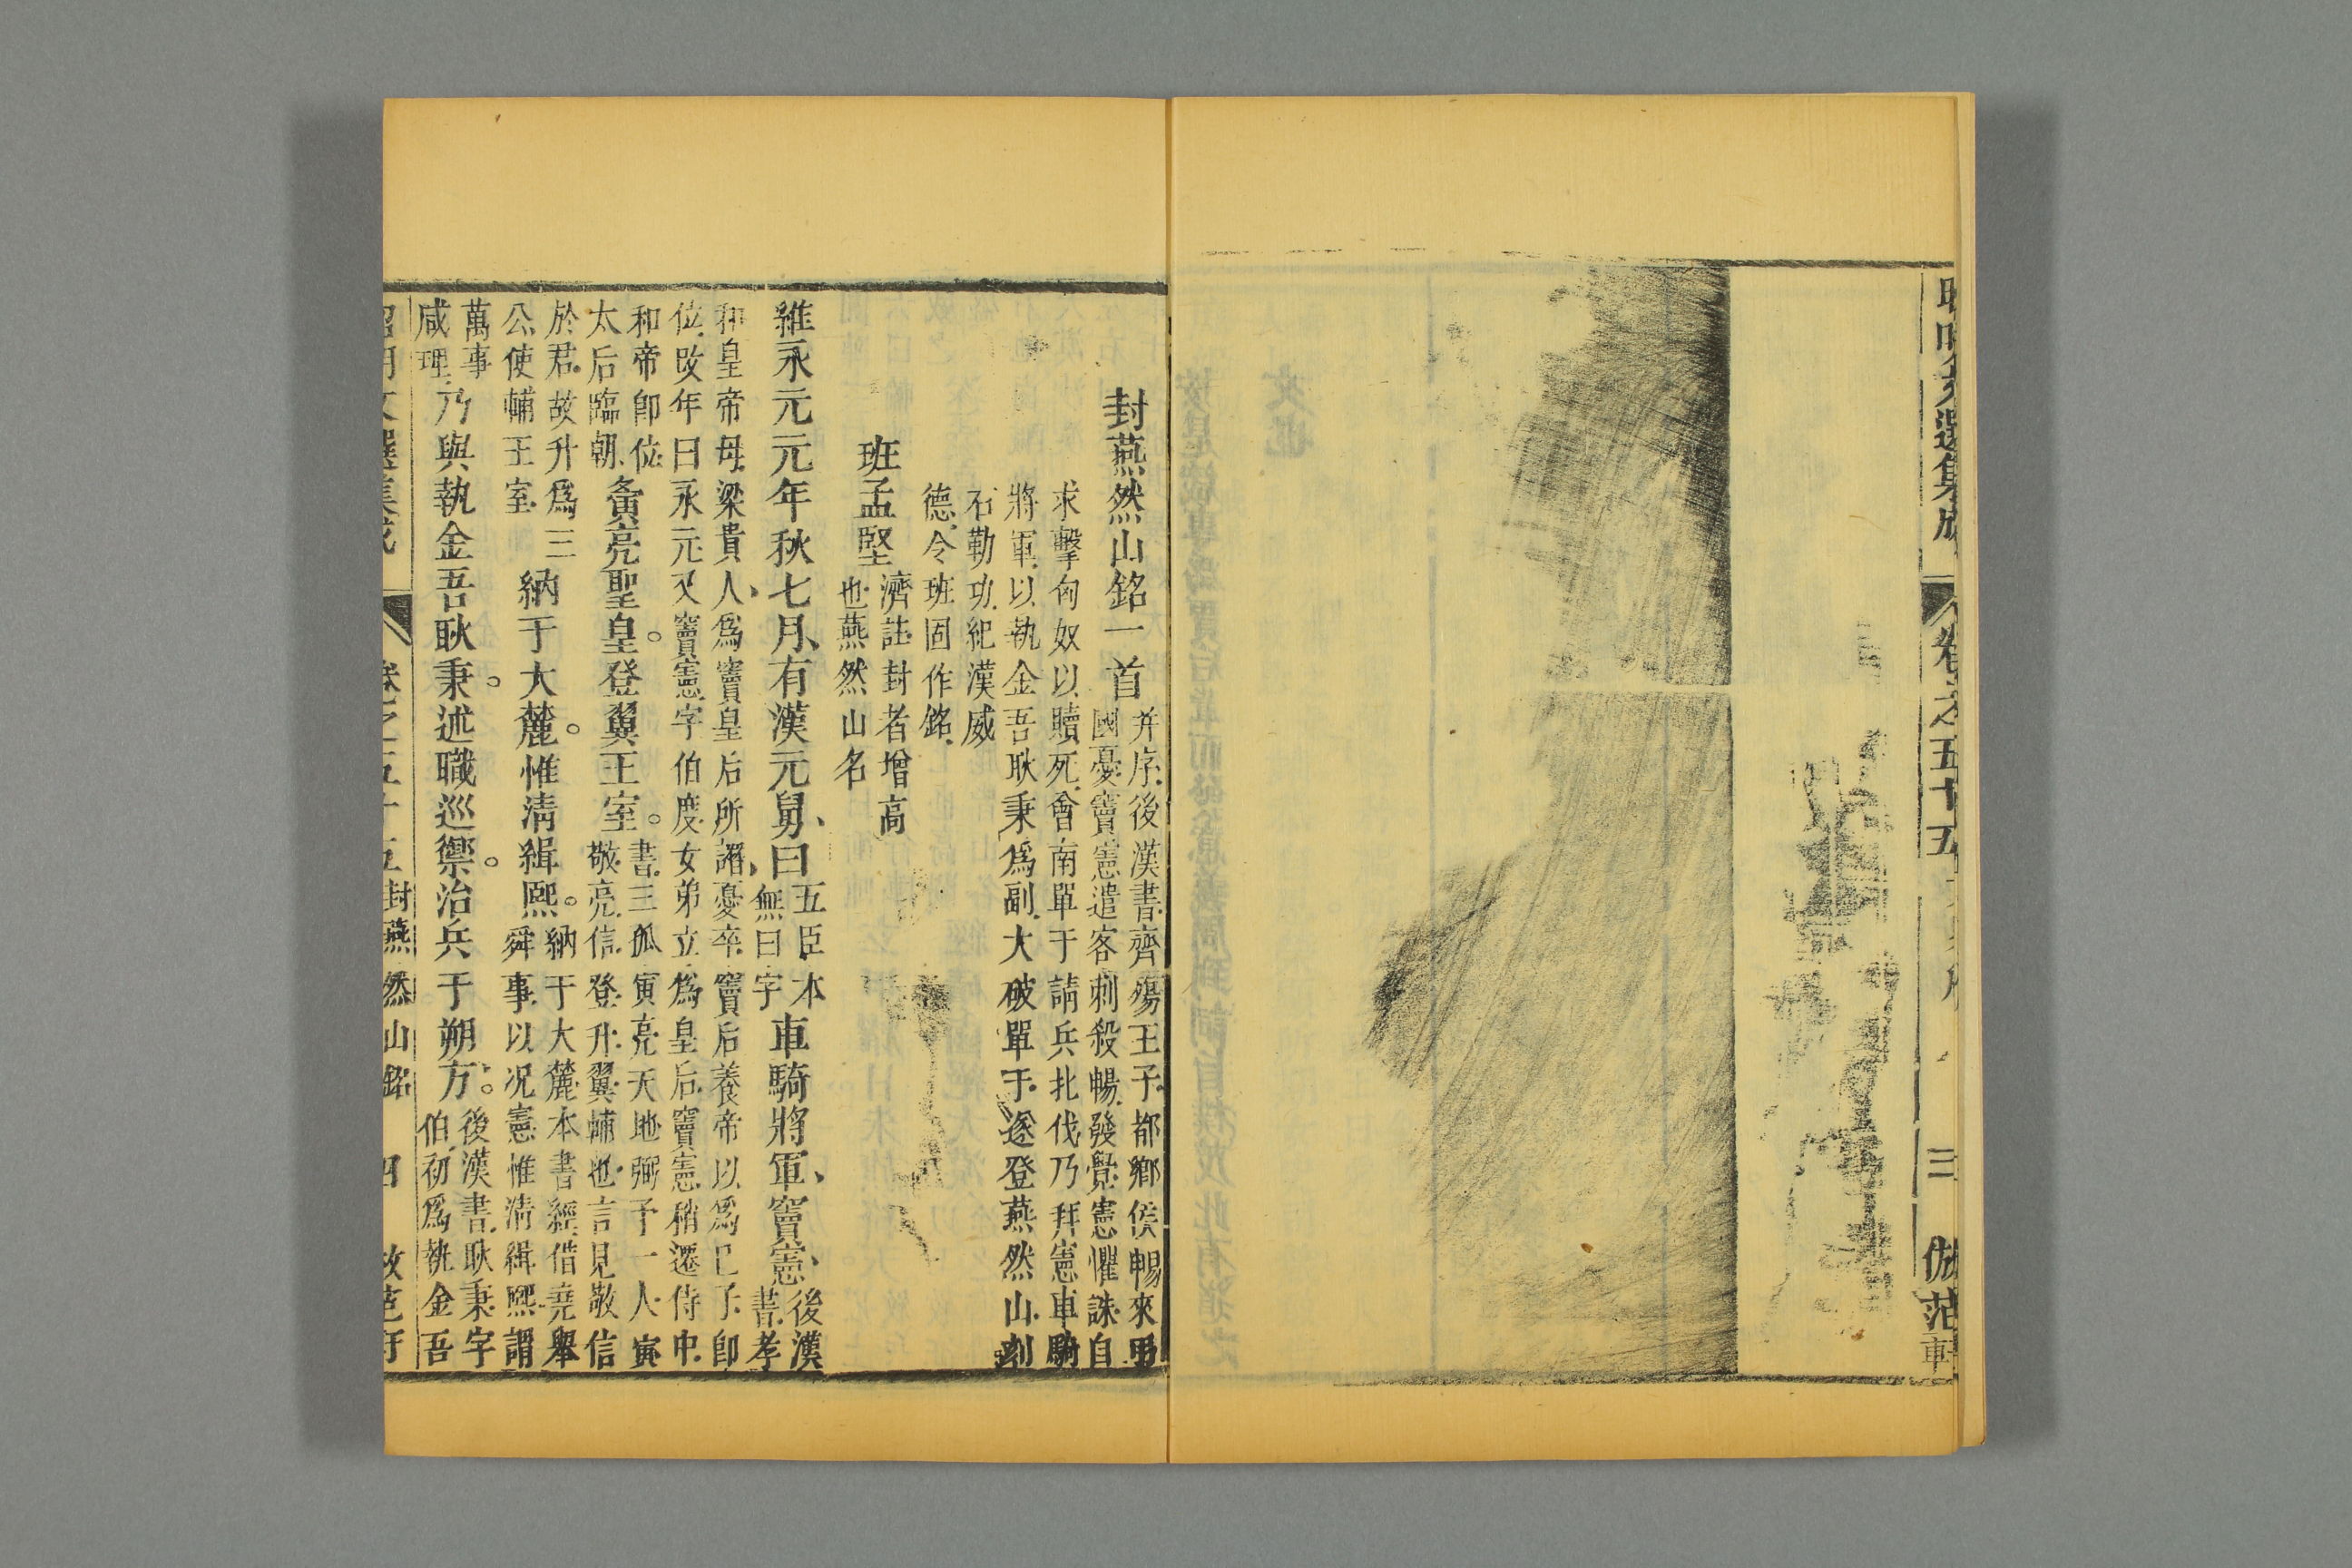 昭明文選集成
卷之五十五
三
倣范軒
封燕然山銘一首
并序後漢書齊殤王子都鄉侯暢來弔
國憂竇憲遣客刺殺暢發覺憲懼誅自
求擊匈奴以贖死會南單于請兵北伐乃拜憲車騎
將軍以執金吾耿秉為副大破單于遂登燕然山刻
石勒功紀漢威
德令班固作銘
班孟堅
濟註封者增高
也燕然山名
維永元元年秋七月有漢元舅曰
五臣本
無曰字
車騎將軍竇憲
後漢
書孝
和皇帝母梁貴人為竇皇后所譖憂卒竇后養帝以為己子即
位改年曰永元又竇憲字伯度女弟立為皇后竇憲稍遷侍中
和帝即位
太后臨朝
寅亮聖皇登翼王室
書三孤寅亮天地弼予一人寅
敬亮信登升翼輔也言見敬信
於君故升為三
公使輔王室
納于大麓惟清緝熙
納于大麓本書經借堯舉
舜事以况憲惟清緝熙謂
萬事
咸理
乃與執金吾耿秉述職巡禦治兵于朔方
後漢書耿秉字
伯初為執金吾
昭明文選集成
卷之五十五
封燕然山銘
四
倣范軒